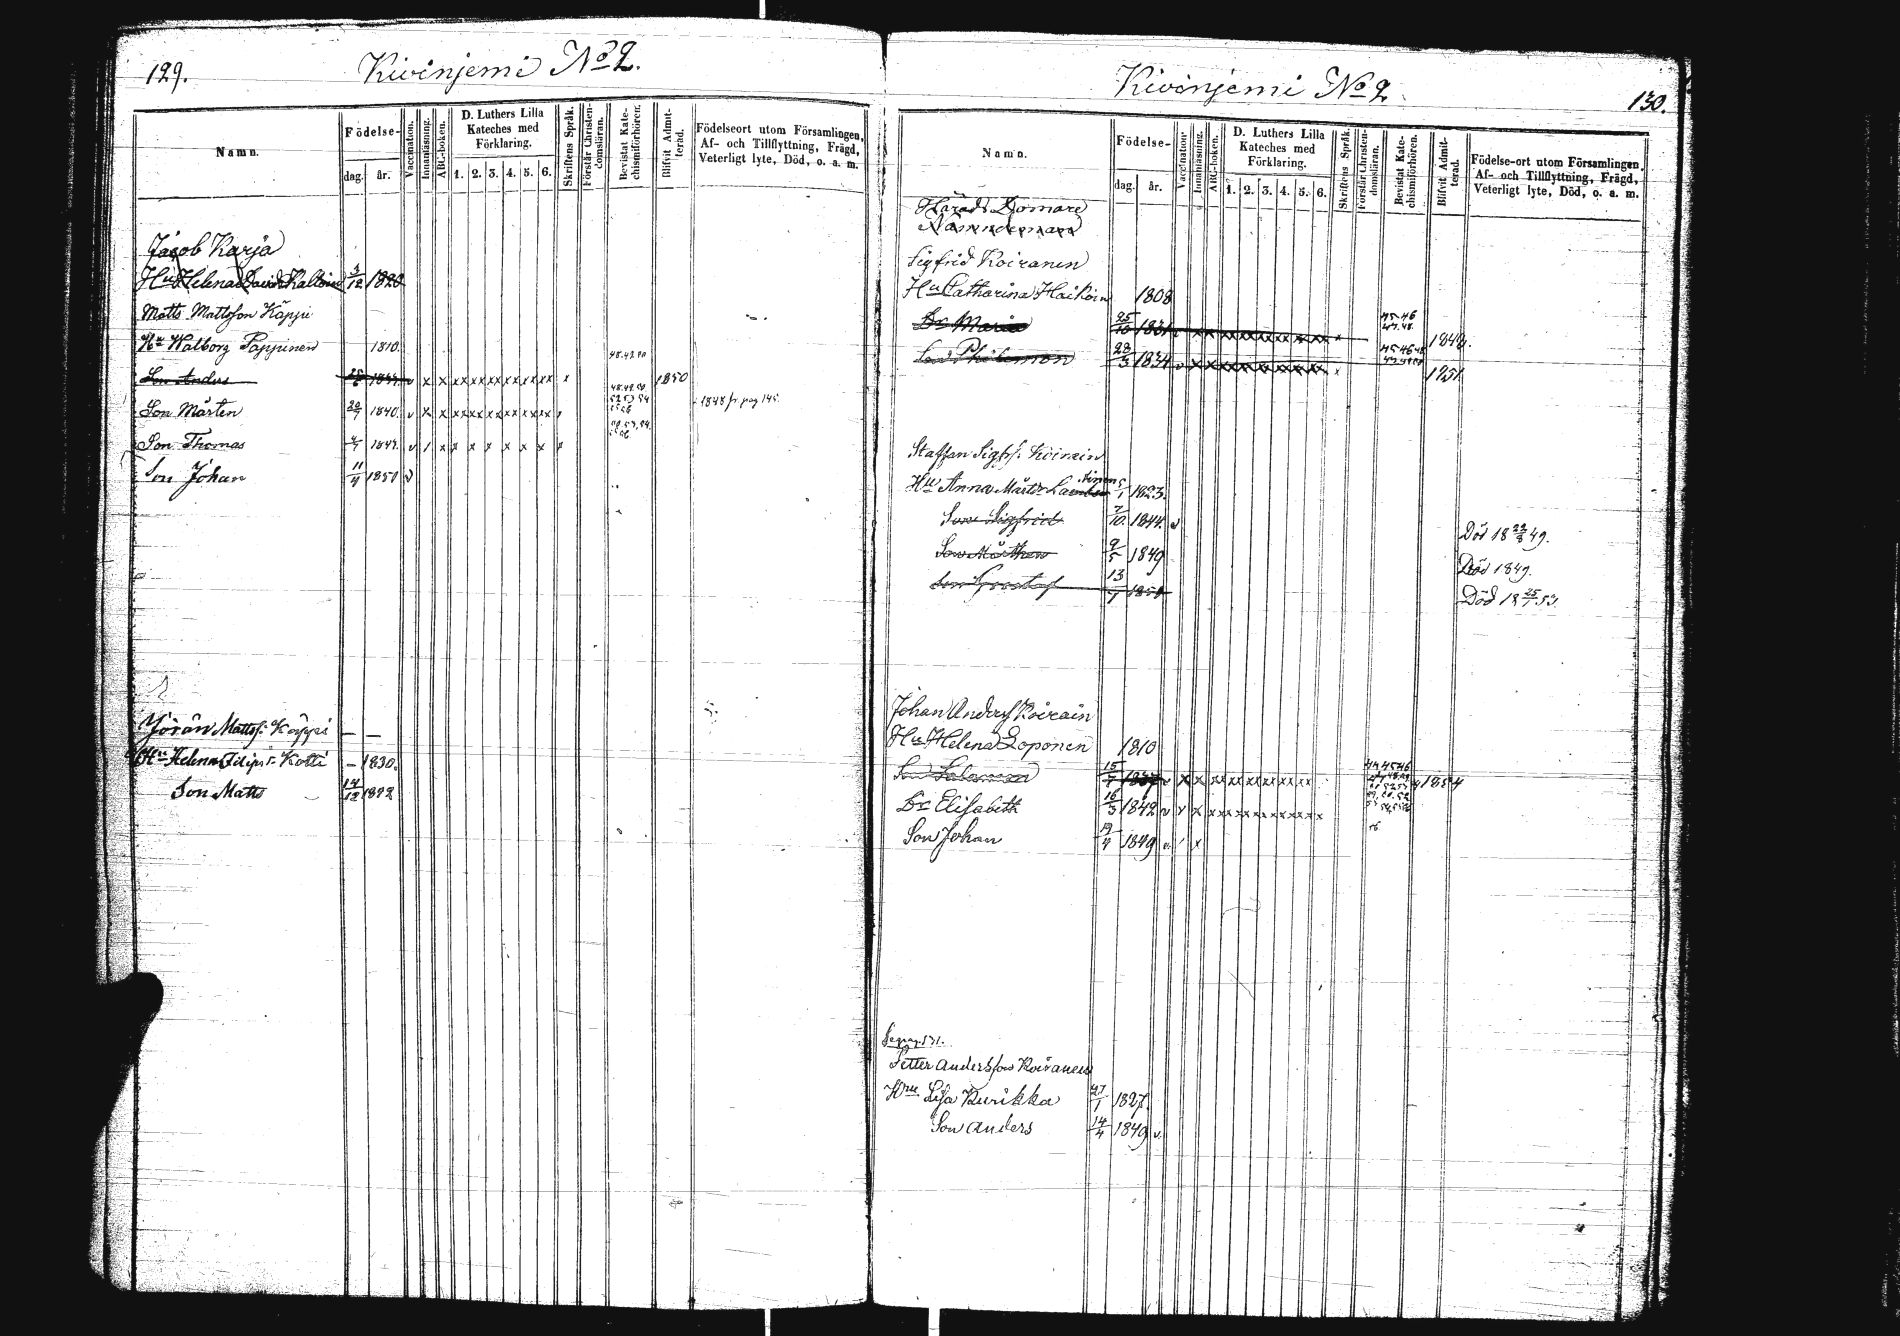 129.
Kivinjemi No 2.
Namn.
Födelse-
dag. år.
Vaccination.
Innanläsning.
ABC-boken.
D. Luthers Lilla
Kateches med
Förklaring.
1. 2. 3. 4. 5. 6.
Skriftens Språk.
Förstår Christen-
domsläran.
Bevistat Kate-
chismiförhören.
Blifvit Admit-
terad.
Födelseort utom Församlingen,
Af- och Tillflyttning, Frägd,
Veterligt lyte, Död, o. a. m.
Jacob Karja
Hu Helena David Kaltoin 3/12 1820
Matts Mattsson Käppi
Hu Walborg Pappinen 1810.
Son Anders v x x x x x x x x x x x x x x x 48.49.50 1850
Son Mårten 20/7 1840. v x x x x x x x x x x x x x x 1848 fr. pag 145.
Son Thomas 1844. v / x x x x x x x x
Son Johan 11/4 1850 v
Jöran Mattss. Käppi — —
Hu Helena Filips dr Kotti — 1830.
Son Matts 14/12 1852
Kivinjemi No 2
130.
Namn.
Födelse-
dag. år.
Vaccination
Innanläsning.
ABC-boken.
D. Luthers Lilla
Kateches med
Förklaring.
1. 2. 3. 4. 5. 6.
Skriftens Språk.
Förstår Christen-
domsläran.
Bevistat Kate-
chismiförhören.
Blifvit Admit-
terad.
Födelse-ort utom Församlingen,
Af- och Tillflyttning, Frägd,
Veterligt lyte, Död, o. a. m.
Härads Domare
Nämndeman
Sigfrid Koiranen
Hu Catharina Haikoin 1808
Dr Maria 25/10 1831 45.46 47.48. 1849.
Son Philemon 28/3 1834 1851
Staffan Sigfr. Koirain
Hu Anna Mårts dr 5/1 1823.
Son Sigfrid 7/10. 1844. v Död 18 22/8 49.
Son Mårthen 9/5 1849 Död 1849.
Son Gustaf 13/1 1851 Död 18 25/1 53.
Johan Anderss Koirain
Hu Helena Loponen 1810
Son Salomon 15/7 1837 v x x x x x x x x x x x x x 1854
Dr Elisabeth 16/3 1842 v x x x x x x x x x x x x x
Son Johan 19/4 1849 v / x
Se pag. 131.
Petter Andersson Koiranen
Hru Lisa Kurikka 27/1 1827.
Son Anders 14/4 1849 v.